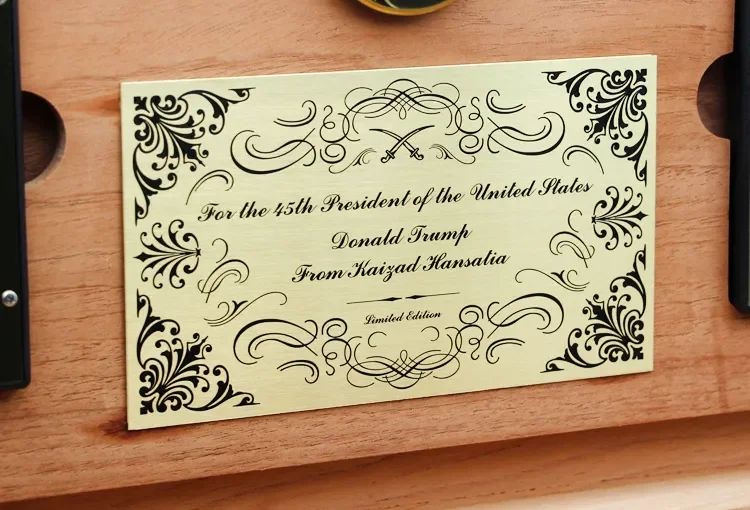 For the 45th President of the United States
Donald Trump
From Kaizad Hansalia
Limited Edition